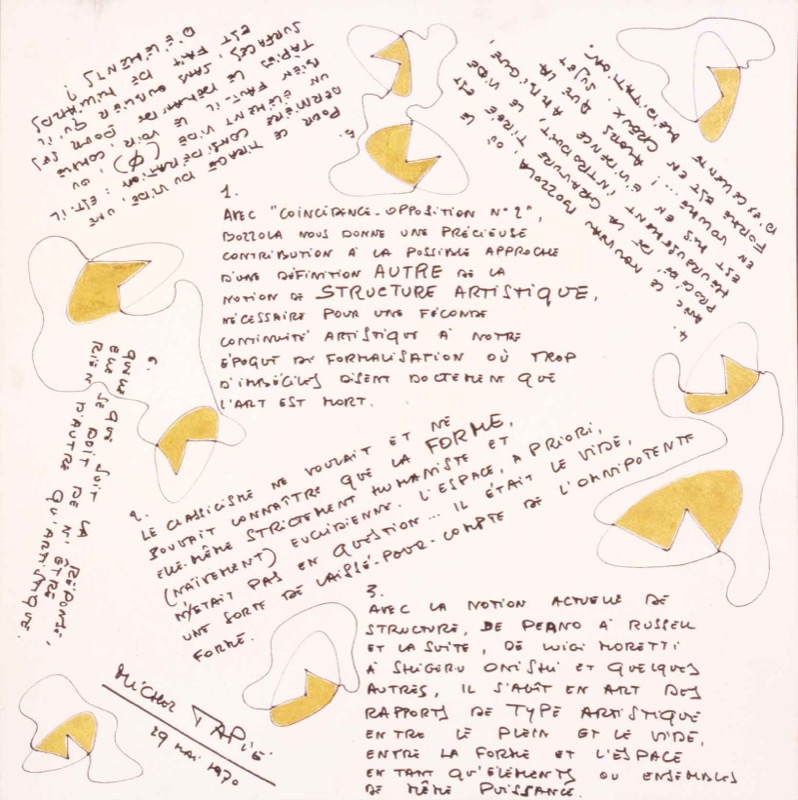 1.
AVEC "COINCIDENCE-OPPOSITION N° 2",
BOZZOLA NOUS DONNE UNE PRÉCIEUSE
CONTRIBUTION À LA POSSIBLE APPROCHE
D'UNE DÉFINITION AUTRE DE LA
NOTION DE STRUCTURE ARTISTIQUE,
NÉCESSAIRE POUR UNE FÉCONDE
CONTINUITÉ ARTISTIQUE À NOTRE
ÉPOQUE DE FORMALISATION OÙ TROP
D'IMBÉCILES DISENT DOCTEMENT QUE
L'ART EST MORT.
2.
LE CLASSICISME NE VOULAIT ET NE
POUVAIT CONNAÎTRE QUE LA FORME,
ELLE-MÊME STRICTEMENT HUMANISTE ET
(NAÏVEMENT) EUCLIDIENNE. L'ESPACE, A PRIORI,
N'ÉTAIT PAS EN QUESTION... IL ÉTAIT LE VIDE,
UNE SORTE DE LAISSÉ-POUR-COMPTE DE L'OMNIPOTENTE
FORME.
3.
AVEC LA NOTION ACTUELLE DE
STRUCTURE, DE PEANO À RUSSELL
ET LA SUITE, DE LUIGI MORETTI
À SHIGERU ONISHI ET QUELQUES
AUTRES, IL S'AGIT EN ART DES
RAPPORTS DE TYPE ARTISTIQUE
ENTRE LE PLEIN ET LE VIDE,
ENTRE LA FORME ET L'ESPACE
EN TANT QU'ÉLÉMENTS OU ENSEMBLES
DE MÊME PUISSANCE.
4.
AVEC CE NOUVEAU BOZZOLA, OÙ LE
PROCÉDÉ DE LA GRAVURE TIRÉE EST
HEUREUSEMENT INTRODUIT, LE VIDE
EST MIS EN ÉVIDENCE AMBIGUE,
EN VOLUME... ! ALORS QUE LA
FORME EST EN CREUX. SUJET
D'EXCELLENTE MÉDITATION.
5.
POUR CE TIRAGE DU VIDE, UNE
DERNIÈRE CONSIDÉRATION : EST-IL
UN ÉLÉMENT VIDE (∅) OU,
BIEN FAUT-IL LE VOIR, COMME
TAPIES LE DEMANDE POUR SES
SURFACES, SANS OUBLIER QU'IL
EST FAIT DE MILLIARDS
D'ÉLÉMENTS ?
6.
QUELLE QUE SOIT LA RÉPONSE,
ELLE SE DOIT DE N'ÊTRE
RIEN D'AUTRE QU'ARTISTIQUE.
MICHEL TAPIÉ
29 MAI 1970